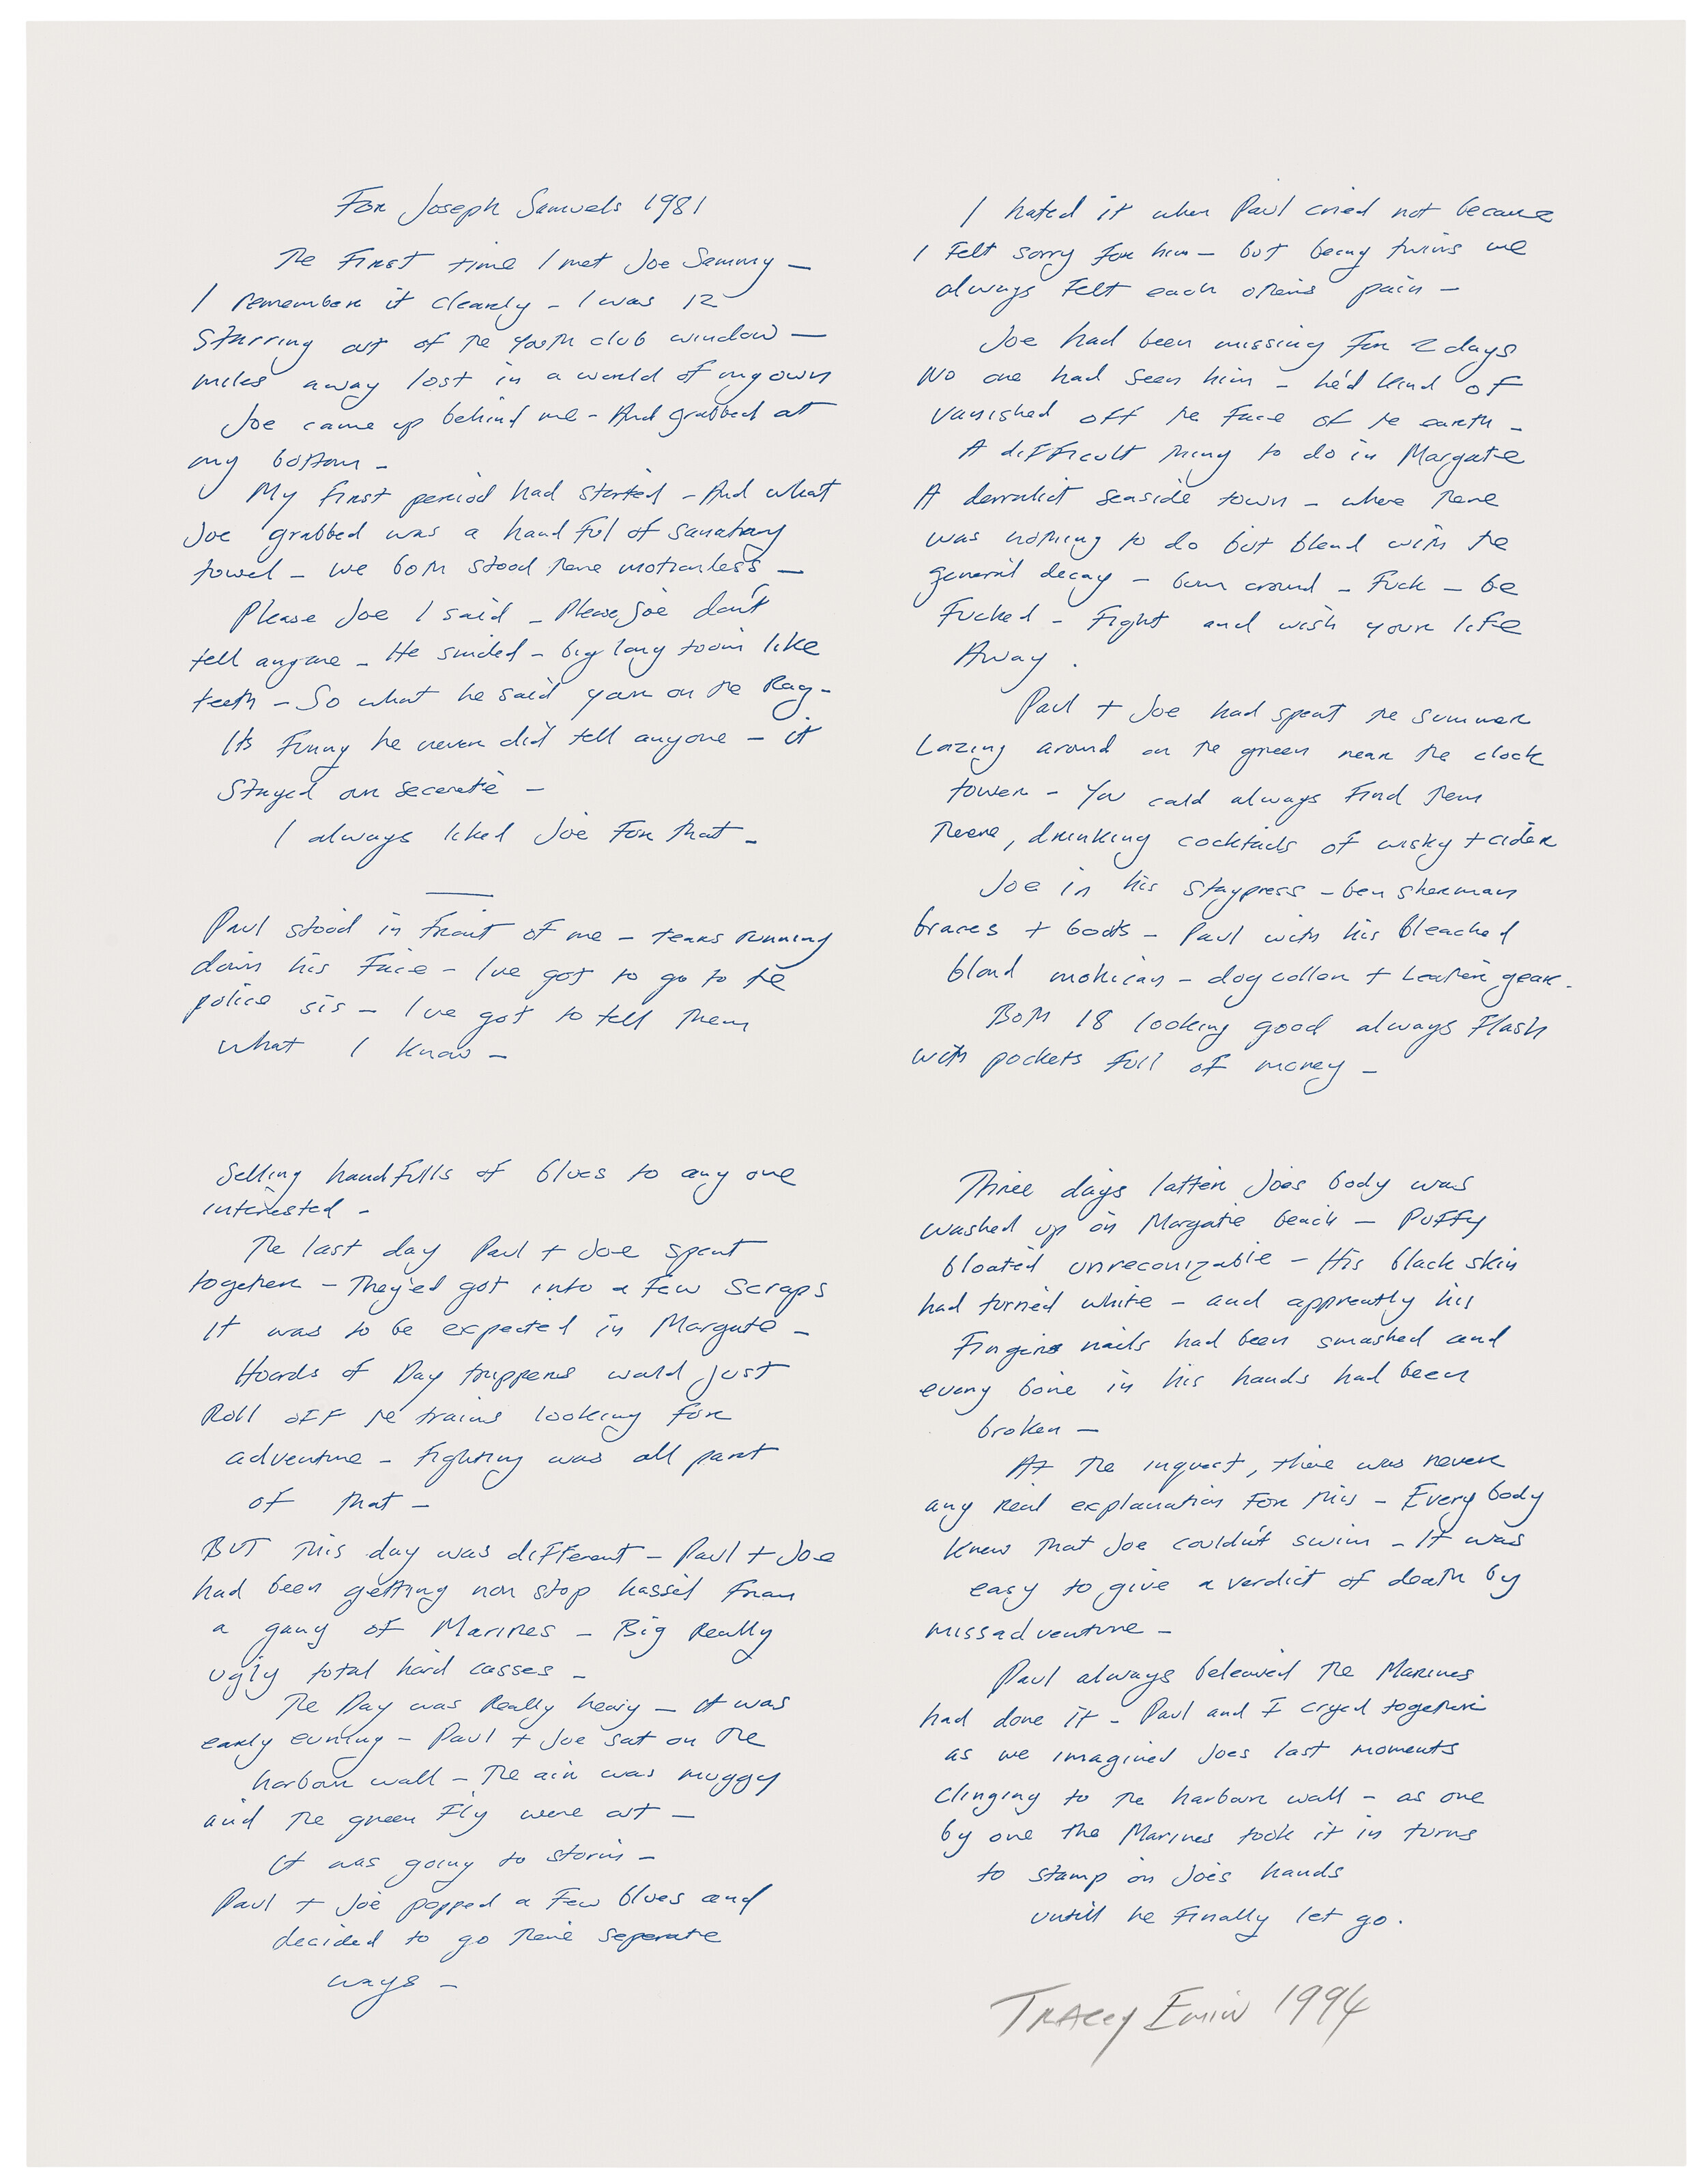 For Joseph Samuels 1981
The First time I met Joe Sammy –
I remember it clearly – I was 12
Starring out of the youth club window –
miles away lost in a world of my own
Joe came up behind me – And grabbed at
my bottom –
My first period had started – And what
Joe grabbed was a hand ful of sanatary
towel – we both stood there motionless –
Please Joe I said – Please Joe don't
tell anyone – He smiled – big long toom like
teeth – So what he said your on the Rag –
Its Funny he never did tell anyone – it
Stayed our secerate –
I always liked Joe For that –
Paul stood in front of me – tears running
down his Face – Ive got to go to the
police sis – I've got to tell them
what I know –
I hated it when Paul cried not because
I Felt sorry for him – but being twins we
always Felt each others pain –
Joe had been missing For 2 days
No one had seen him – he'd kind of
vanished off the Face of the earth –
A difficult thing to do in Margate
A derralict seaside town – where there
was nothing to do but blend with the
general decay – bum around – Fuck – be
Fucked – Fight and wish your life
Away .
Paul + Joe had spent the summer
Lazing around on the green near the clock
tower – You could always Find them
there, drinking cocktails of wisky + cider
Joe in his staypress – ben sherman
braces + boots – Paul with his bleached
blond mohican – dog collar + Leather gear.
Both 18 looking good always Flash
with pockets full of money –
Selling handfulls of blues to any one
interested –
The last day Paul + Joe spent
together – They'ed got into a few scraps
It was to be expected in Margate –
Hoards of Day trippers would just
Roll off the trains looking for
adventure – fighting was all part
of that –
BUT this day was different – Paul + Joe
had been getting non stop hassel from
a gang of Marines – Big Really
ugly total hard casses –
The Day was Really heavy – It was
early evning – Paul + Joe sat on the
harbour wall – The air was muggy
and the green Fly were out –
It was going to storm –
Paul + Joe popped a Few blues and
decided to go there seperate
ways –
Three days latter Joes body was
washed up on Margate beach – Puffy
bloated unreconizable – His black skin
had turned white – and apprently his
Fingers nails had been smashed and
every bone in his hands had been
broken –
At the inquest, there was never
any real explanation For this – Every body
knew that Joe couldn't swim – It was
easy to give a verdict of death by
missadventure –
Paul always beleaived the Marines
had done it – Paul and I cryed together
as we imagined Joes last moments
Clinging to the harbour wall – as one
by one the Marines took it in turns
to stamp on Joes hands
untill he Finally let go.
Tracey Emin 1994